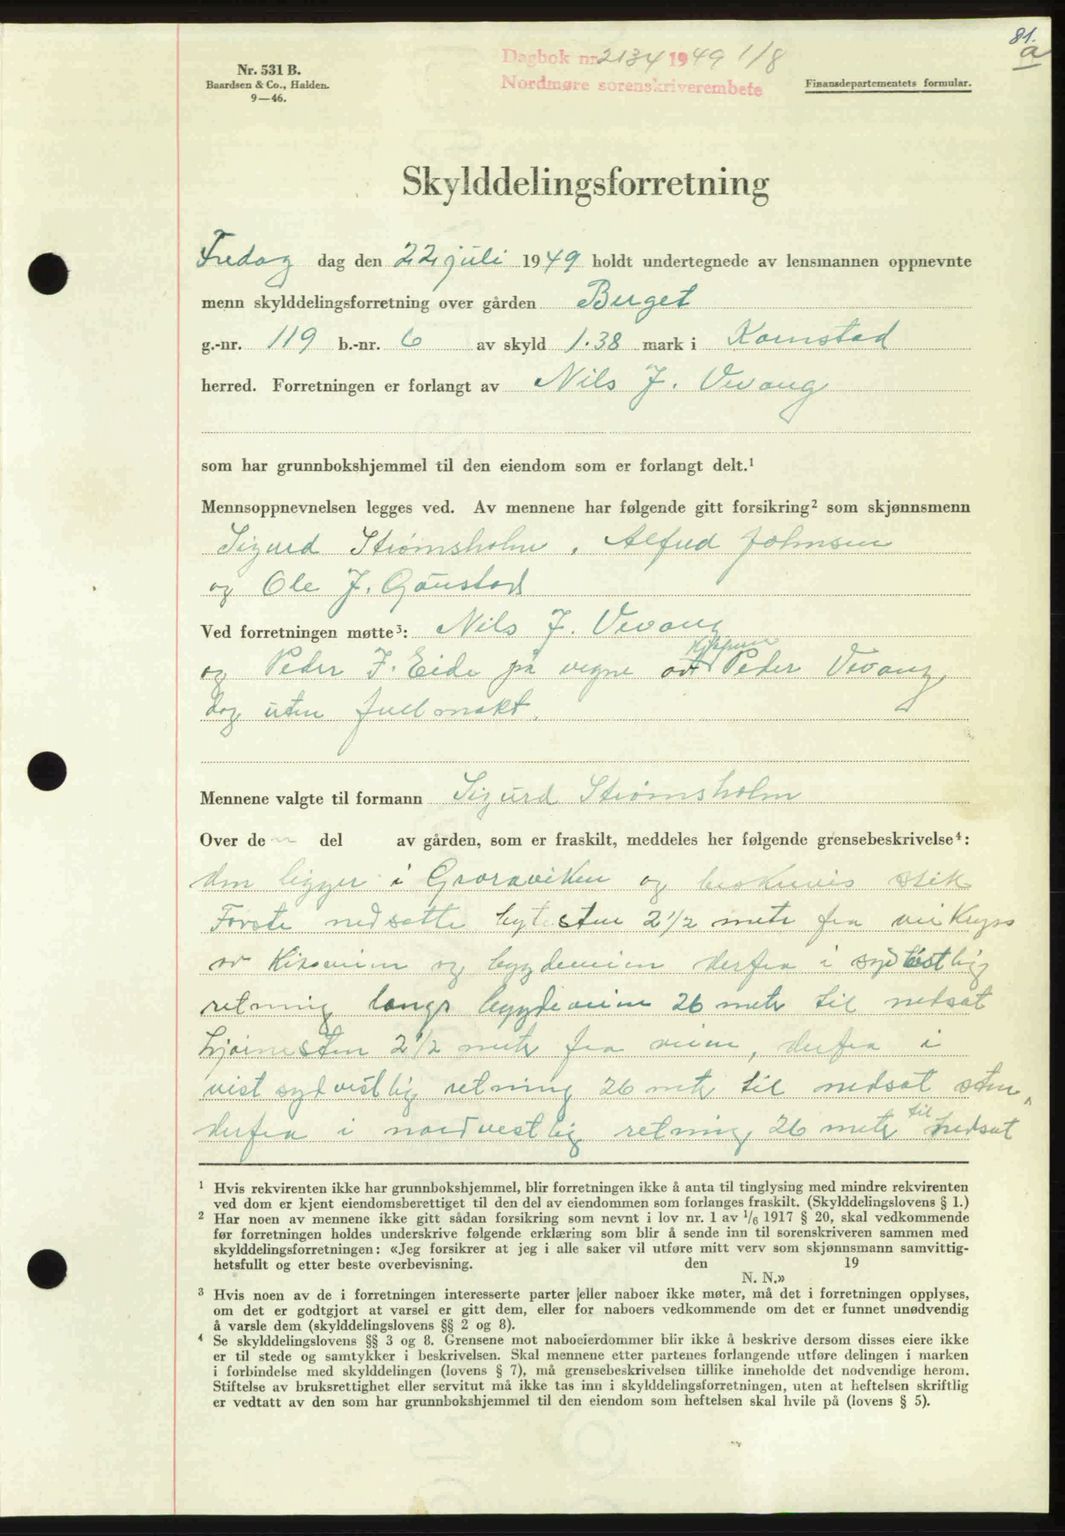 81.
a
Dagbok nr. 2134 1949 1/8
Nordmøre sorenskriverembete
Nr. 531 B.
Baardsen & Co., Halden.
9—46.
Finansdepartementets formular.
Skylddelingsforretning
Fredag dag den 22 juli 1949 holdt undertegnede av lensmannen oppnevnte
menn skylddelingsforretning over gården Berget
g.-nr. 119 b.-nr. 6 av skyld 1.38 mark i Kornstad
herred. Forretningen er forlangt av Nils J. Vevang
som har grunnbokshjemmel til den eiendom som er forlangt delt.¹
Mennsoppnevnelsen legges ved. Av mennene har følgende gitt forsikring² som skjønnsmenn
Sigurd Strømsholm, Alfred Johnsen
og Ole J. Gaustad
Ved forretningen møtte³: Nils J. Vevang
og Peder J. Eide på vegne av kjøperen Peder Vevang
dog uten fullmakt.
Mennene valgte til formann Sigurd Strømsholm
Over den del av gården, som er fraskilt, meddeles her følgende grensebeskrivelse⁴:
den ligger i og beskrives slik
Første nedsatte bytesten 2 1/2 meter fra veikryss
av og bygdeveien derfra i sydøstlig
retning langs bygdeveien 26 meter til nedsat
hjørnesten 2 1/2 meter fra veien, derfra i
vest sydvestlig retning 26 meter til nedsat sten,
derfra i nordvestlig retning 26 meter til nedsat
¹ Hvis rekvirenten ikke har grunnbokshjemmel, blir forretningen ikke å anta til tinglysing med mindre rekvirenten
ved dom er kjent eiendomsberettiget til den del av eiendommen som forlanges fraskilt. (Skylddelingslovens § 1.)
² Har noen av mennene ikke gitt sådan forsikring som nevnt i lov nr. 1 av 1/6 1917 § 20, skal vedkommende
før forretningen holdes underskrive følgende erklæring som blir å sende inn til sorenskriveren sammen med
skylddelingsforretningen: «Jeg forsikrer at jeg i alle saker vil utføre mitt verv som skjønnsmann samvittig-
hetsfullt og etter beste overbevisning. den 19
N. N.»
³ Hvis noen av de i forretningen interesserte parter eller naboer ikke møter, må det i forretningen opplyses,
om det er godtgjort at varsel er gitt dem, eller for naboers vedkommende om det er funnet unødvendig
å varsle dem (skylddelingslovens §§ 2 og 8).
⁴ Se skylddelingslovens §§ 3 og 8. Grensene mot naboeierdommer blir ikke å beskrive dersom disses eiere ikke
er til stede og samtykker i beskrivelsen. Skal mennene etter partenes forlangende utføre delingen i marken
i forbindelse med skylddelingen (lovens § 7), må grensebeskrivelsen tillike inneholde det nødvendige herom.
Stiftelse av bruksrettighet eller servitut må ikke tas inn i skylddelingsforretningen, uten at heftelsen skriftlig
er vedtatt av den som har grunnbokshjemmel til den eiendom som heftelsen skal hvile på (lovens § 5).